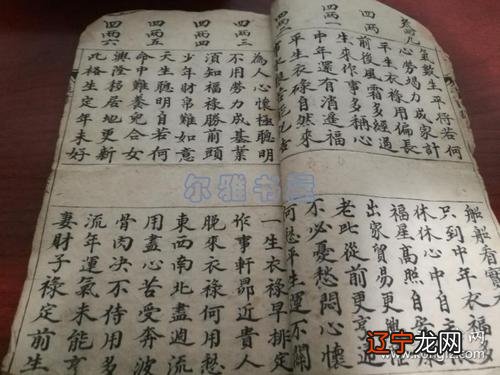 氣數生平將若何
心勞竭力成家計
四兩
平生衣祿用偏長
前後風霜多經過
四兩一
生來作事多称心
中年還有消逢福
平生衣祿自然來
四兩三
為人心懷極聰明
不用勞力成基業
四兩四
須知福祿勝前頭
少年財帛難如意
四兩五
天生聰明自若何
命中難養兒合女
四兩六
興隆移居地更新
此格生定年未好
船船看寶
只到中年衣
休休心中自
福星高照自
出家貿易更
老此從前更亨
不必憂愁悶心懷
何愁平生運不開
一生衣祿早排定
作事軒昂近貴人
晚來衣祿何用愁
東西南北盡週流
用盡心苦受奔波
骨肉決不待用多
流年運氣未能亨
妻財子祿定前生
尔雅书屋
辽宁龙网
www.kongliz.com